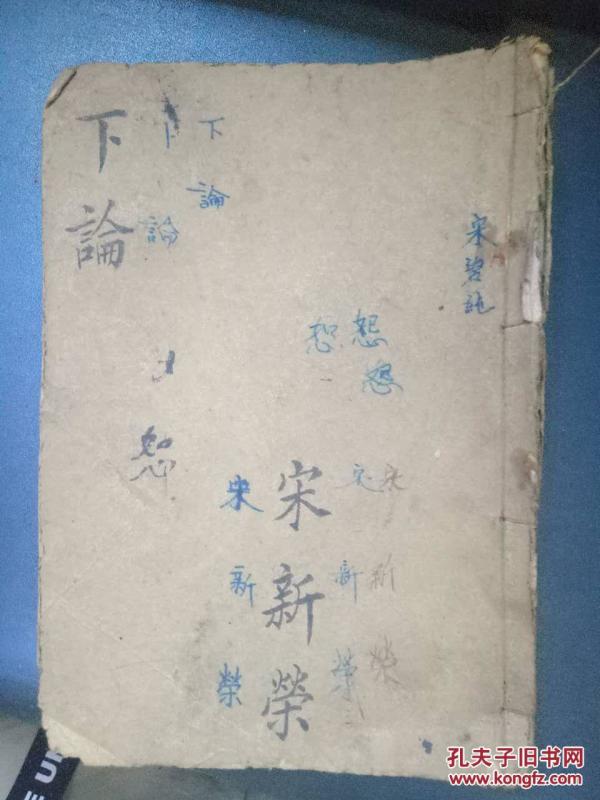 宋碧純
恕
恕
下論
下論
下論
恕
宋新榮
宋新榮
宋新榮
宋新榮
孔夫子旧书网
www.kongfz.com